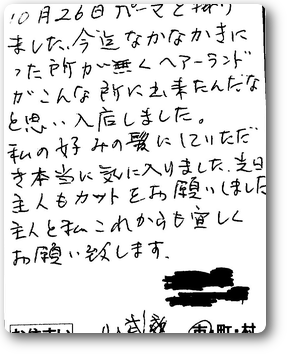 10月26日パーマで参り
ました、今迄なかなか気に
いった所が無くヘアーランド
がこんな所に出来たんだな
と思い入店しました。
私の好みの髪にしていただ
き本当に気に入りました、当日
主人もカットをお願いしました
主人と私これからも宜しく
お願い致します。
お住まい
市・町・村